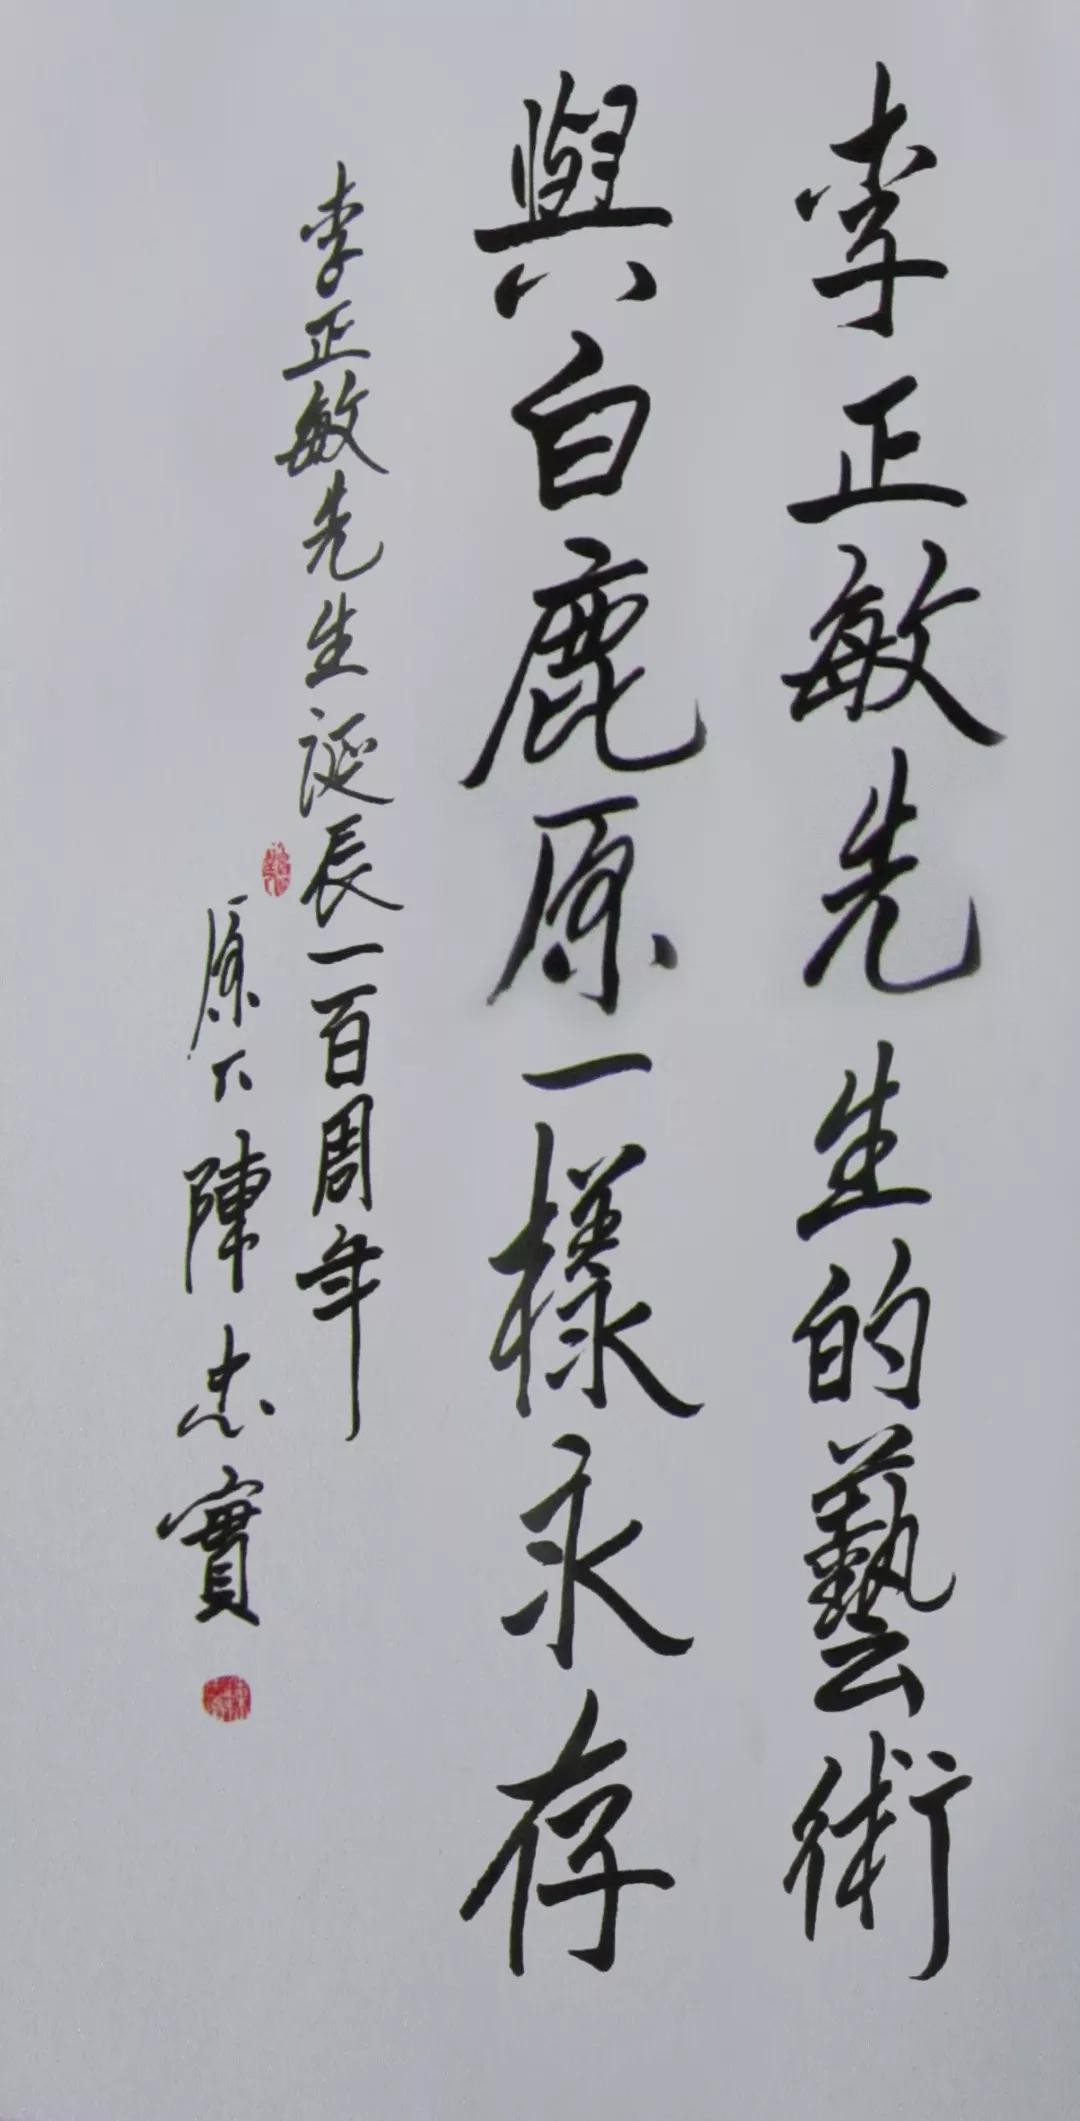 李正敏先生的藝術
與白鹿原一樣永存
李正敏先生誕辰一百周年
原下陳忠實